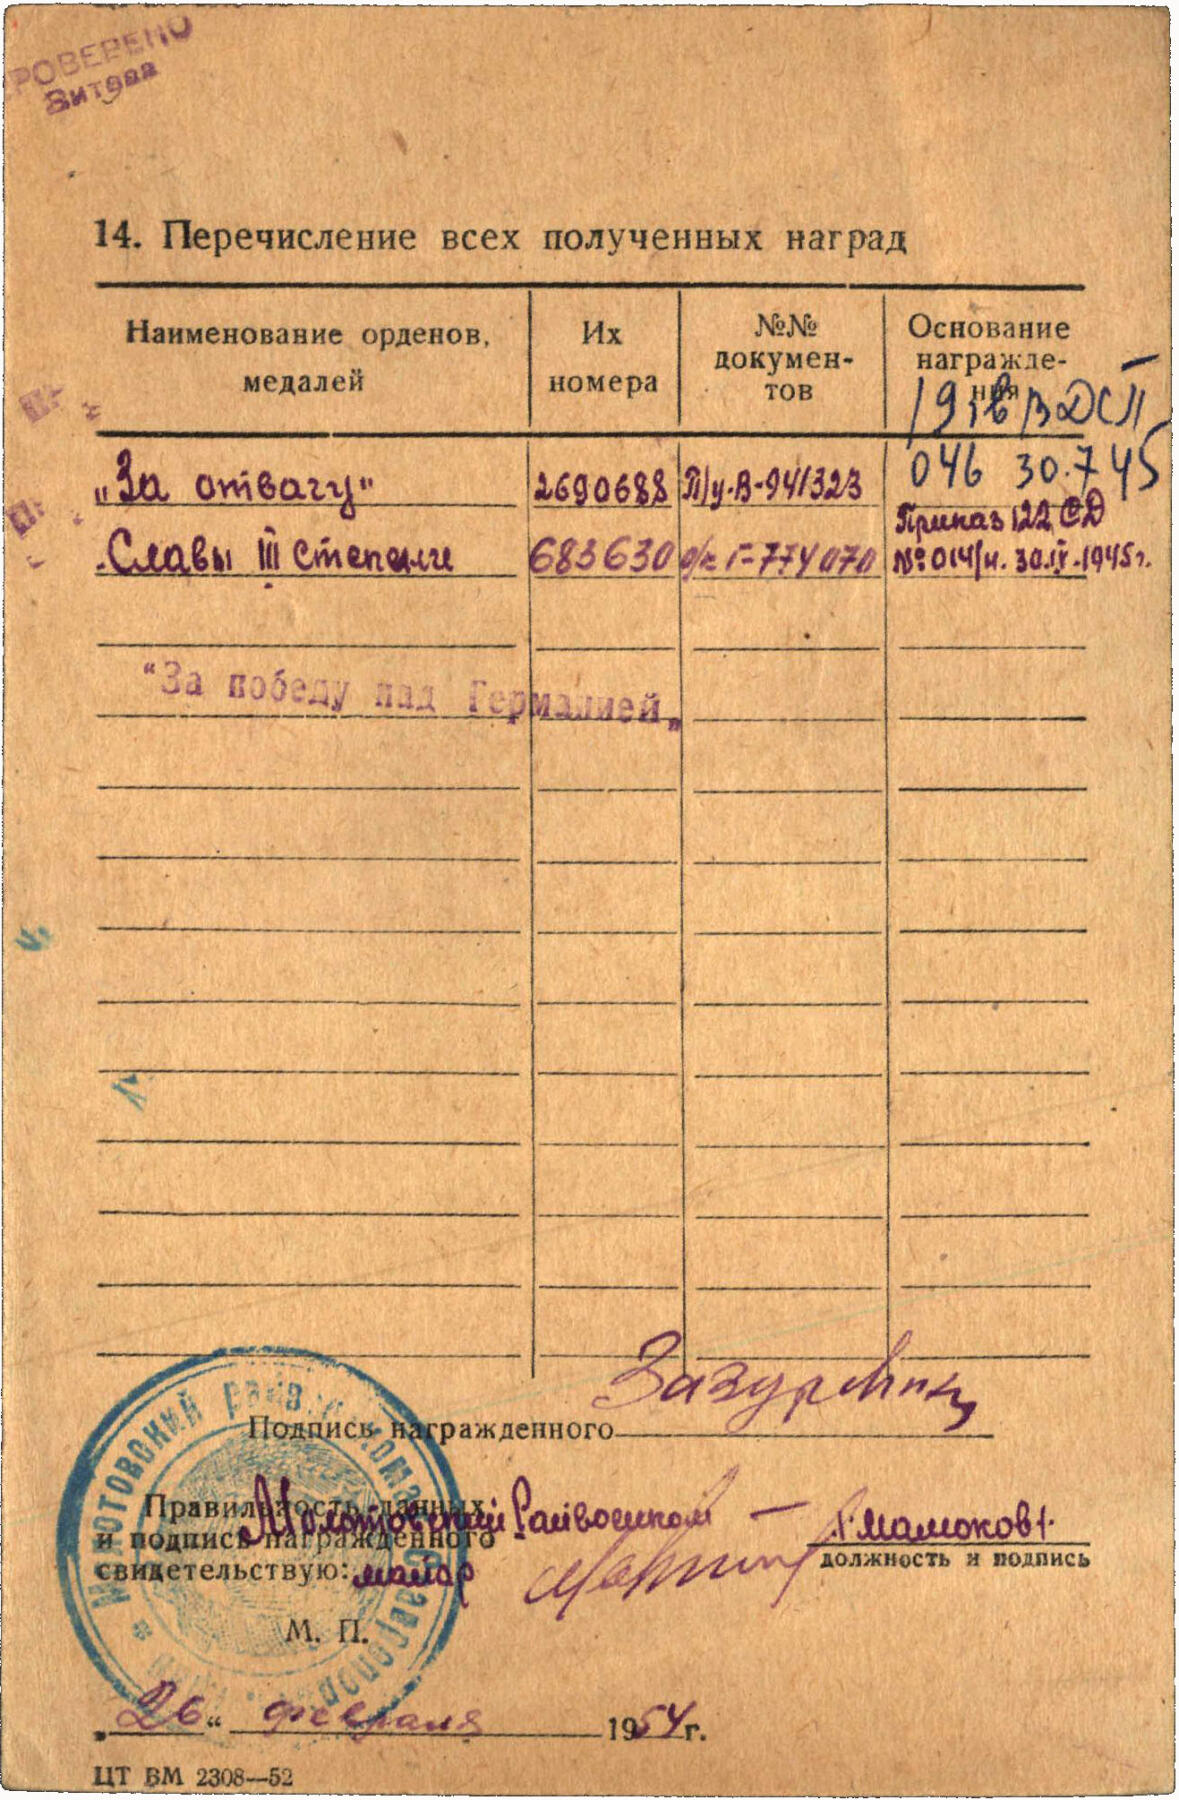 ПРОВЕРЕНО
14. Перечисление всех полученных наград
Наименование орденов, медалей
Их номера
№№ докумен-
тов
Основание
награжде-
ния
„За отвагу“ 2690688 П/у-В-941323
046 30.7 45
Приказ 122 СД
Славы III степени 683630 о/к Г-774070 №: 014/н. 30.IV.1945г.
“За победу над Германией„
Подпись награжденного
Правильность данных
и подпись награжденного
свидетельствую: майор
Молотовский Райвоенком
/Мамоков/.
должность и подпись
М. П.
„26“ февраля 1954 г.
ЦТ ВМ 2308—52